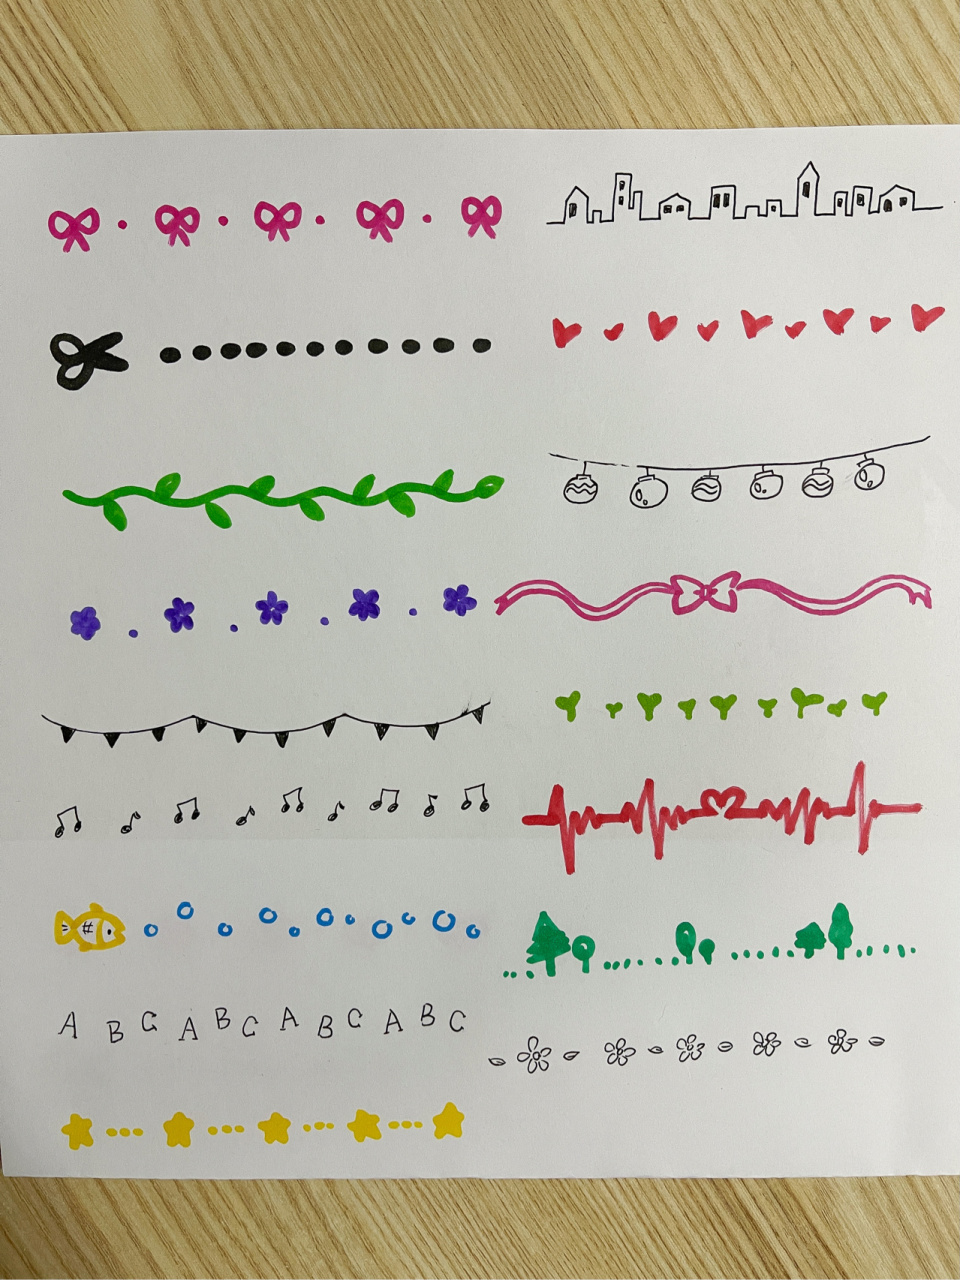 A B C A B C A B C A B C